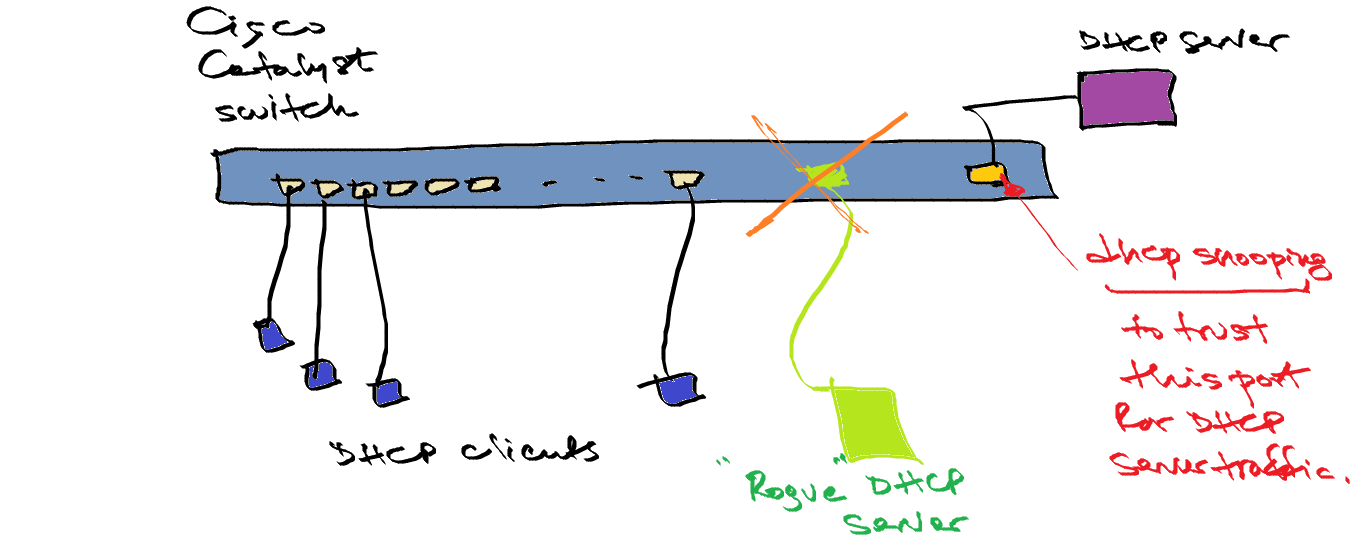 Cisco
Catalyst
switch
DHCP server
dhcp snooping
to trust
this port
for DHCP
server traffic.
DHCP clients
"Rogue" DHCP
server